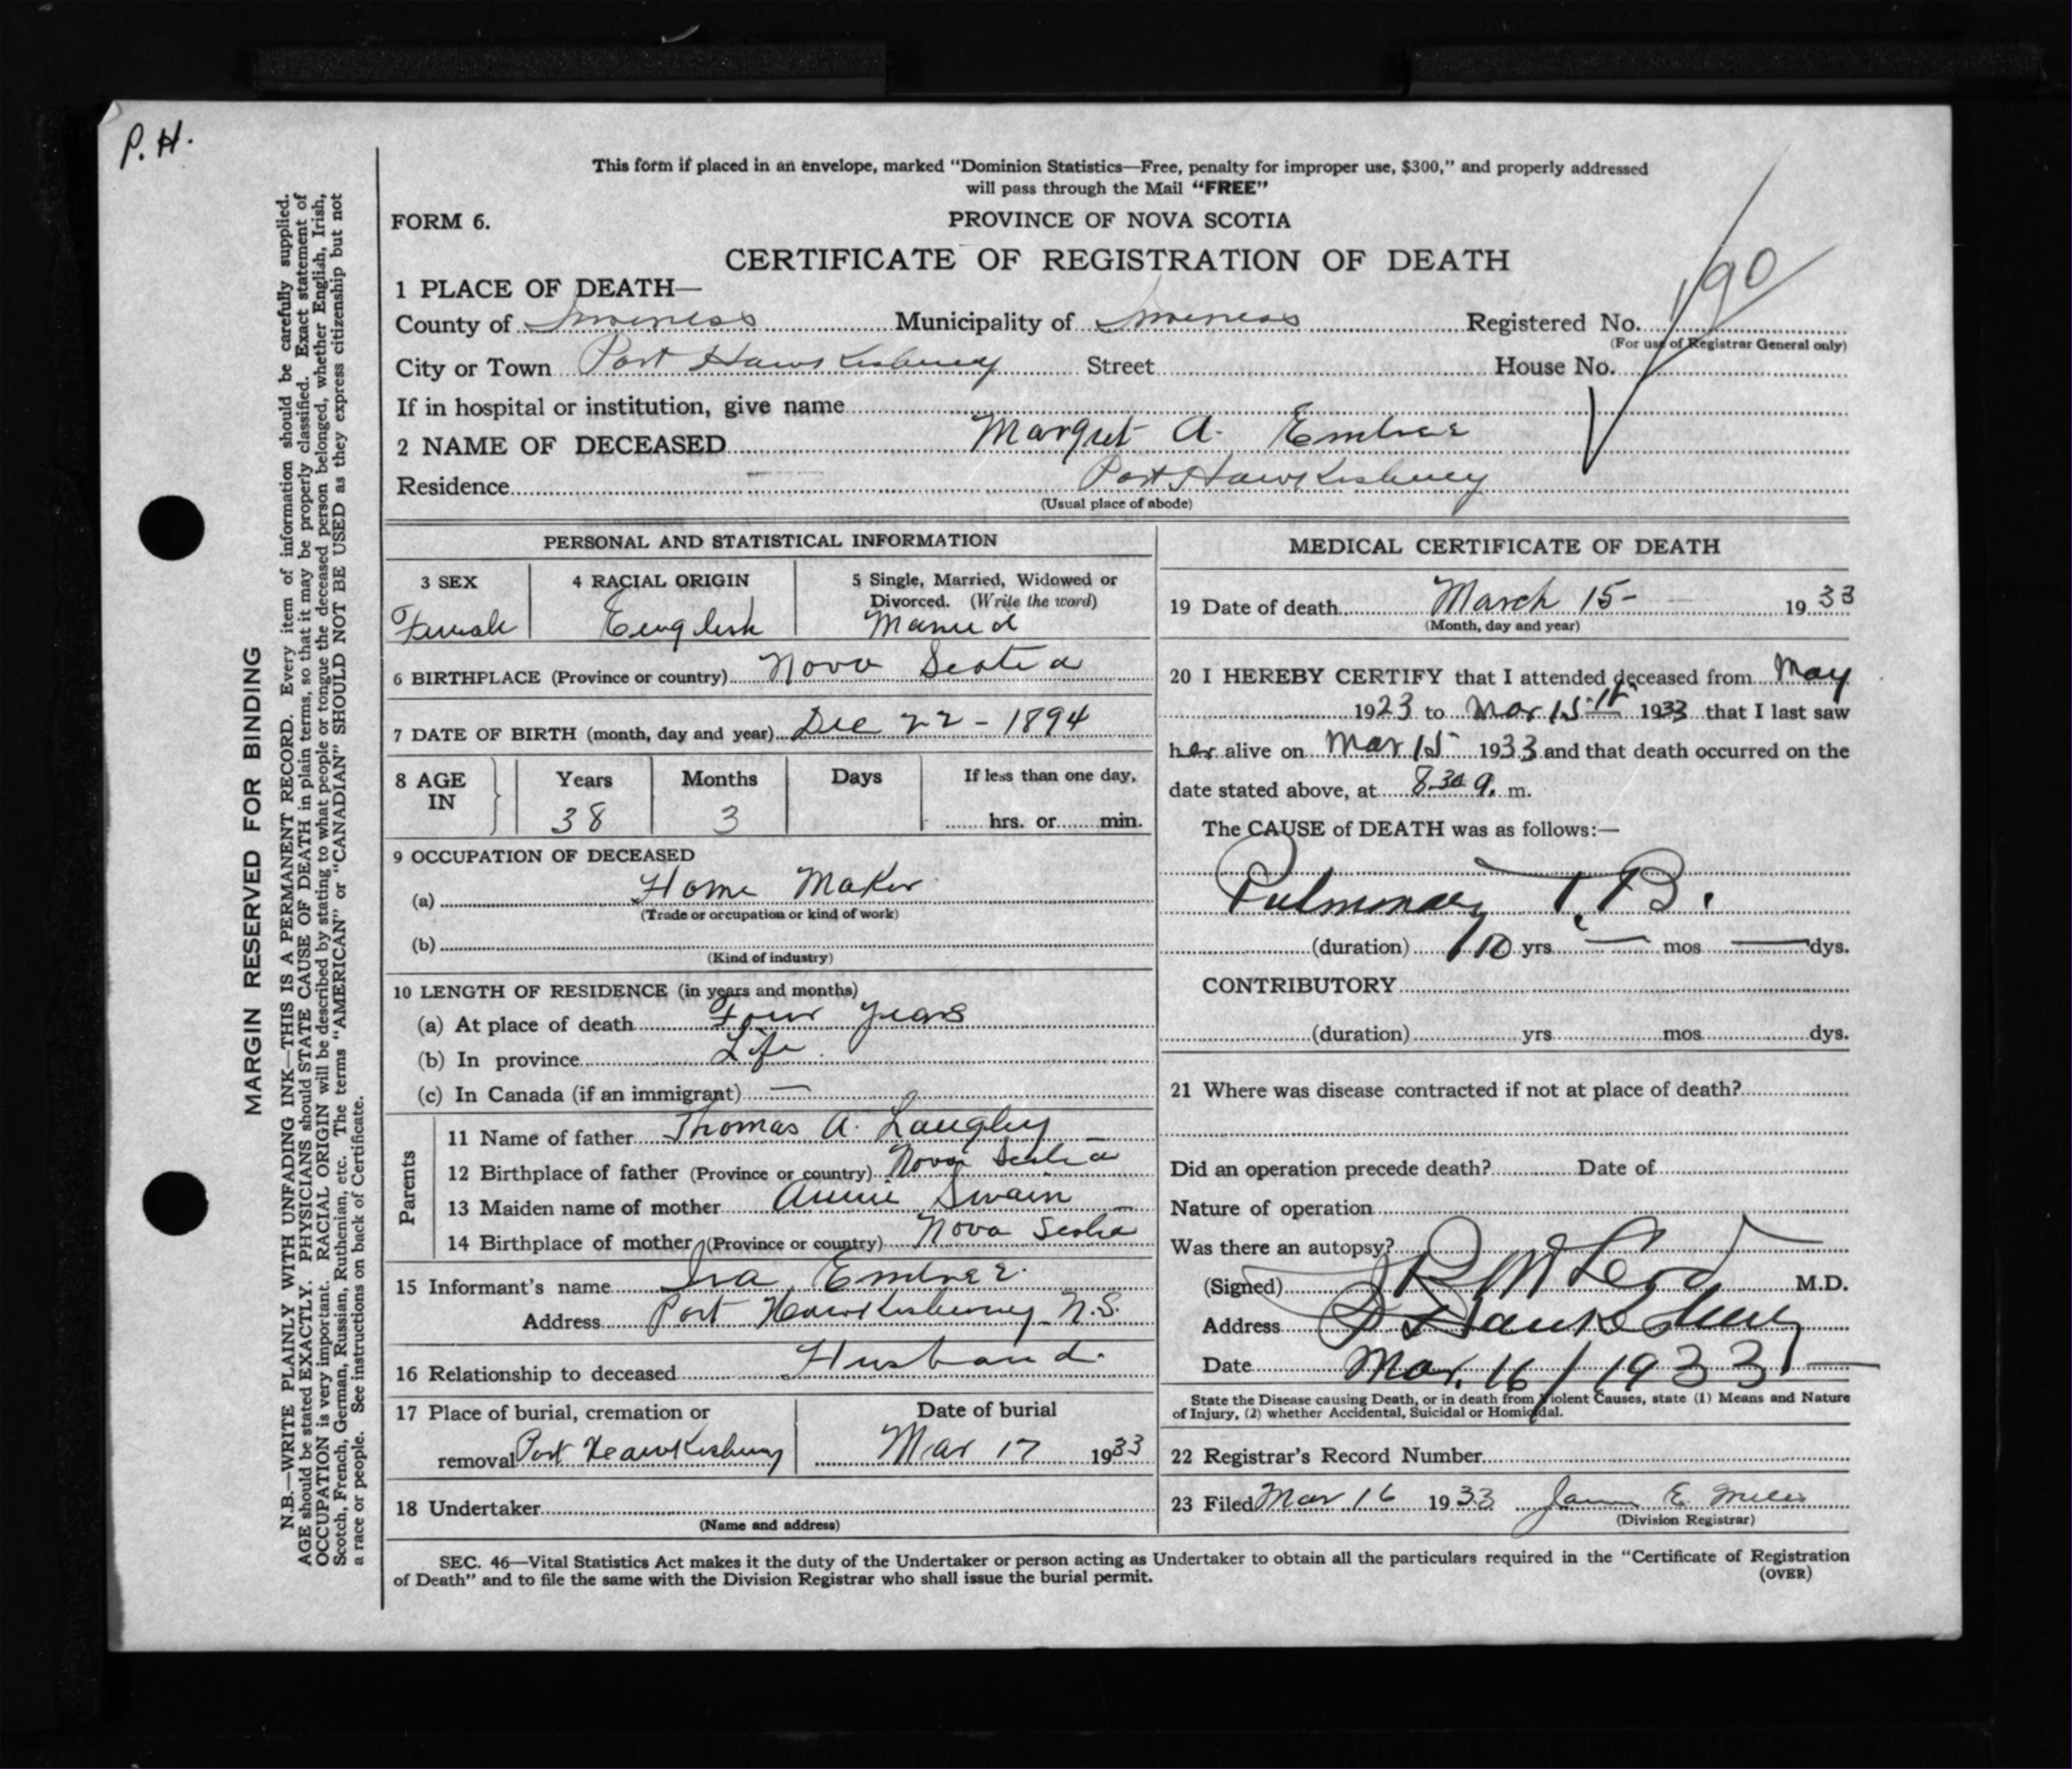 P. H.
This form if placed in an envelope, marked “Dominion Statistics—Free, penalty for improper use, $300,” and properly addressed
will pass through the Mail “FREE”
FORM 6.
PROVINCE OF NOVA SCOTIA
CERTIFICATE OF REGISTRATION OF DEATH
190
1 PLACE OF DEATH—
County of Inverness Municipality of Inverness Registered No.
(For use of Registrar General only)
City or Town Port Hawkesbury Street House No.
If in hospital or institution, give name
2 NAME OF DECEASED Margret A. Embree
Residence Port Hawkesbury
(Usual place of abode)
PERSONAL AND STATISTICAL INFORMATION
3 SEX 4 RACIAL ORIGIN 5 Single, Married, Widowed or
Divorced. (Write the word)
Female English Married
6 BIRTHPLACE (Province or country) Nova Scotia
7 DATE OF BIRTH (month, day and year) Dec 22 - 1894
8 AGE Years Months Days If less than one day,
IN 38 3 hrs. or min.
9 OCCUPATION OF DECEASED
(a) Home Maker
(Trade or occupation or kind of work)
(b)
(Kind of industry)
10 LENGTH OF RESIDENCE (in years and months)
(a) At place of death Four years
(b) In province Life
(c) In Canada (if an immigrant) —
Parents
11 Name of father Thomas A. Langley
12 Birthplace of father (Province or country) Nova Scotia
13 Maiden name of mother Annie Swain
14 Birthplace of mother (Province or country) Nova Scotia
15 Informant's name Ira Embree
Address Port Hawkesbury N.S.
16 Relationship to deceased Husband
17 Place of burial, cremation or Date of burial
removal Port Hawkesbury Mar 17 1933
18 Undertaker
(Name and address)
MEDICAL CERTIFICATE OF DEATH
19 Date of death March 15- 1933
(Month, day and year)
20 I HEREBY CERTIFY that I attended deceased from May
1923 to Mar 15th 1933 that I last saw
her alive on Mar 15 1933 and that death occurred on the
date stated above, at 8.30 a. m.
The CAUSE of DEATH was as follows:—
Pulmonary T.B.
(duration) 10 yrs — mos — dys.
CONTRIBUTORY
(duration) yrs mos dys.
21 Where was disease contracted if not at place of death?
Did an operation precede death? Date of
Nature of operation
Was there an autopsy?
(Signed) M.D.
Address P Hawkesbury
Date Mar. 16/1933
State the Disease causing Death, or in death from Violent Causes, state (1) Means and Nature
of Injury, (2) whether Accidental, Suicidal or Homicidal.
22 Registrar's Record Number
23 Filed Mar 16 1933 James E
(Division Registrar)
SEC. 46—Vital Statistics Act makes it the duty of the Undertaker or person acting as Undertaker to obtain all the particulars required in the “Certificate of Registration
of Death” and to file the same with the Division Registrar who shall issue the burial permit.
(OVER)
MARGIN RESERVED FOR BINDING
N.B.—WRITE PLAINLY WITH UNFADING INK—THIS IS A PERMANENT RECORD. Every item of information should be carefully supplied.
AGE should be stated EXACTLY. PHYSICIANS should STATE CAUSE OF DEATH in plain terms, so that it may be properly classified. Exact statement of
OCCUPATION is very important. RACIAL ORIGIN will be described by stating to what people or tongue the deceased person belonged, whether English, Irish,
Scotch, French, German, Russian, Ruthenian, etc. The terms “AMERICAN” or “CANADIAN” SHOULD NOT BE USED as they express citizenship but not
a race or people. See instructions on back of Certificate.